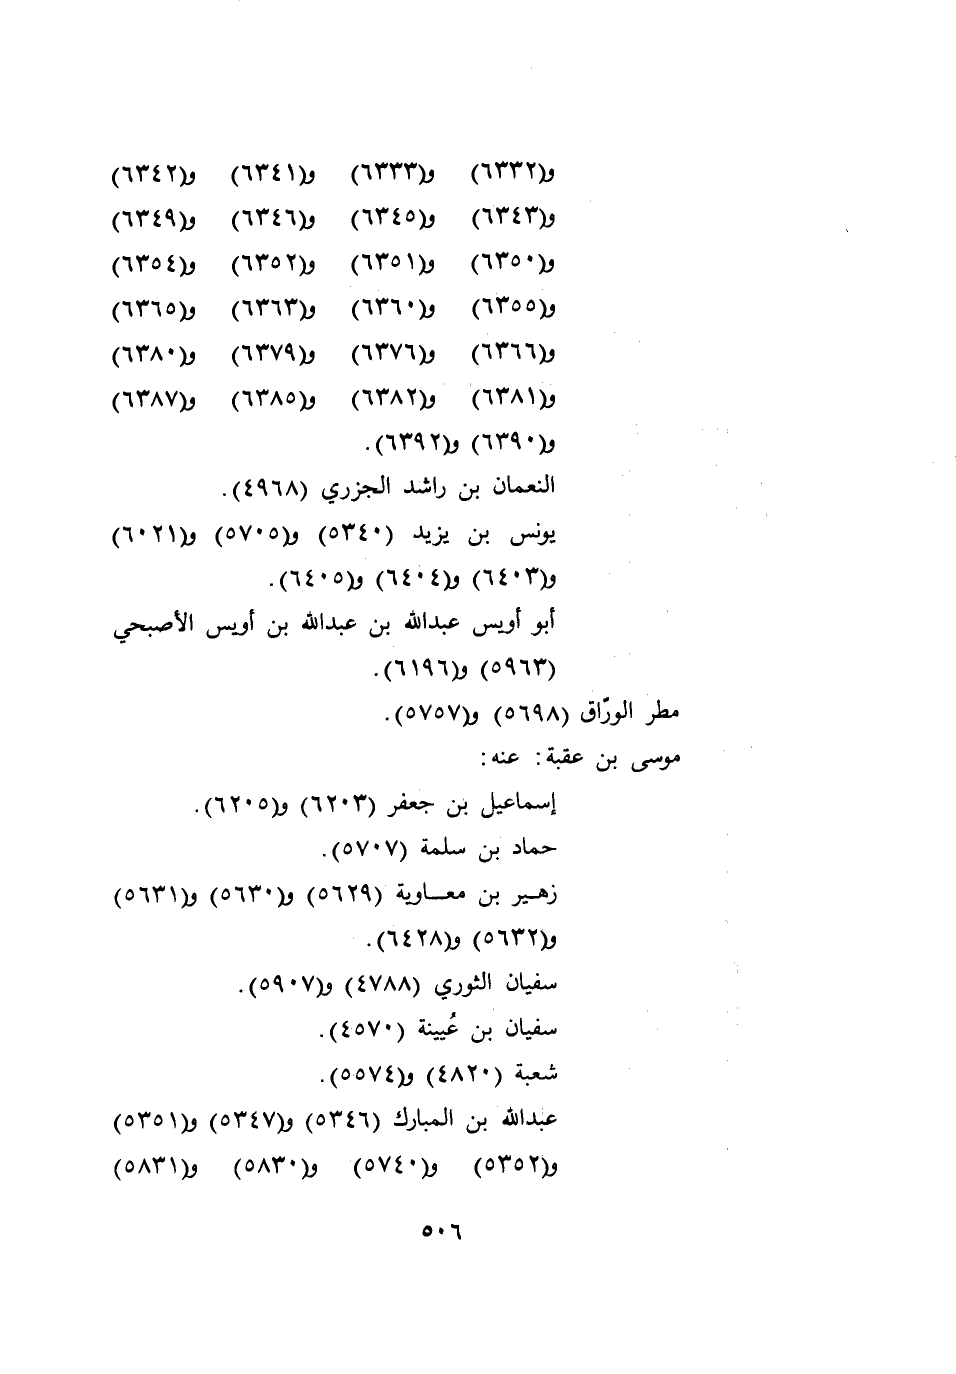 و(٦٣٣٢) و(٦٣٣٣) و(٦٣٤١) و(٦٣٤٢)
و(٦٣٤٣) و(٦٣٤٥) و(٦٣٤٦) و(٦٣٤٩)
و(٦٣٥٠) و(٦٣٥١) و(٦٣٥٢) و(٦٣٥٤)
و(٦٣٥٥) و(٦٣٦٠) و(٦٣٦٣) و(٦٣٦٥)
و(٦٣٦٦) و(٦٣٧٦) و(٦٣٧٩) و(٦٣٨٠)
و(٦٣٨١) و(٦٣٨٢) و(٦٣٨٥) و(٦٣٨٧)
و(٦٣٩٠) و(٦٣٩٢).
النعمان بن راشد الجزري (٤٩٦٨).
يونس بن يزيد (٥٣٤٠) و(٥٧٠٥) و(٦٠٢١)
و(٦٤٠٣) و(٦٤٠٤) و(٦٤٠٥).
أبو أويس عبدالله بن عبدالله بن أويس الأصبحي
(٥٩٦٣) و(٦١٩٦).
مطر الورّاق (٥٦٩٨) و(٥٧٥٧).
موسى بن عقبة: عنه:
إسماعيل بن جعفر (٦٢٠٣) و(٦٢٠٥).
حماد بن سلمة (٥٧٠٧).
زهير بن معاوية (٥٦٢٩) و(٥٦٣٠) و(٥٦٣١)
و(٥٦٣٢) و(٦٤٢٨).
سفيان الثوري (٤٧٨٨) و(٥٩٠٧).
سفيان بن عُيينة (٤٥٧٠).
شعبة (٤٨٢٠) و(٥٥٧٤).
عبدالله بن المبارك (٥٣٤٦) و(٥٣٤٧) و(٥٣٥١)
و(٥٣٥٢) و(٥٧٤٠) و(٥٨٣٠) و(٥٨٣١)
٥٠٦